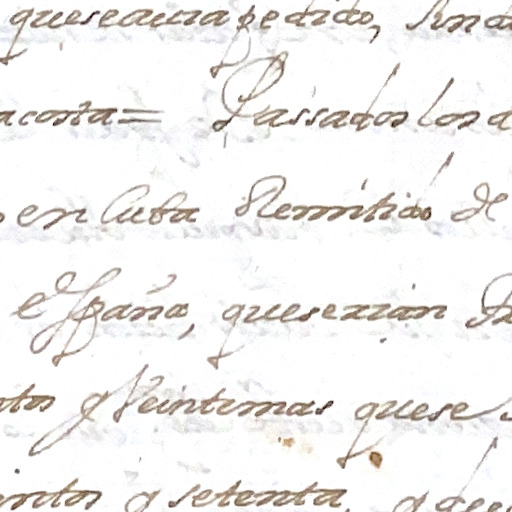 queseauia pedido,
acosta = Passados los
en Cuba Remitido de
España, que serian
tos y Veinte mas que se
entos y setenta, y